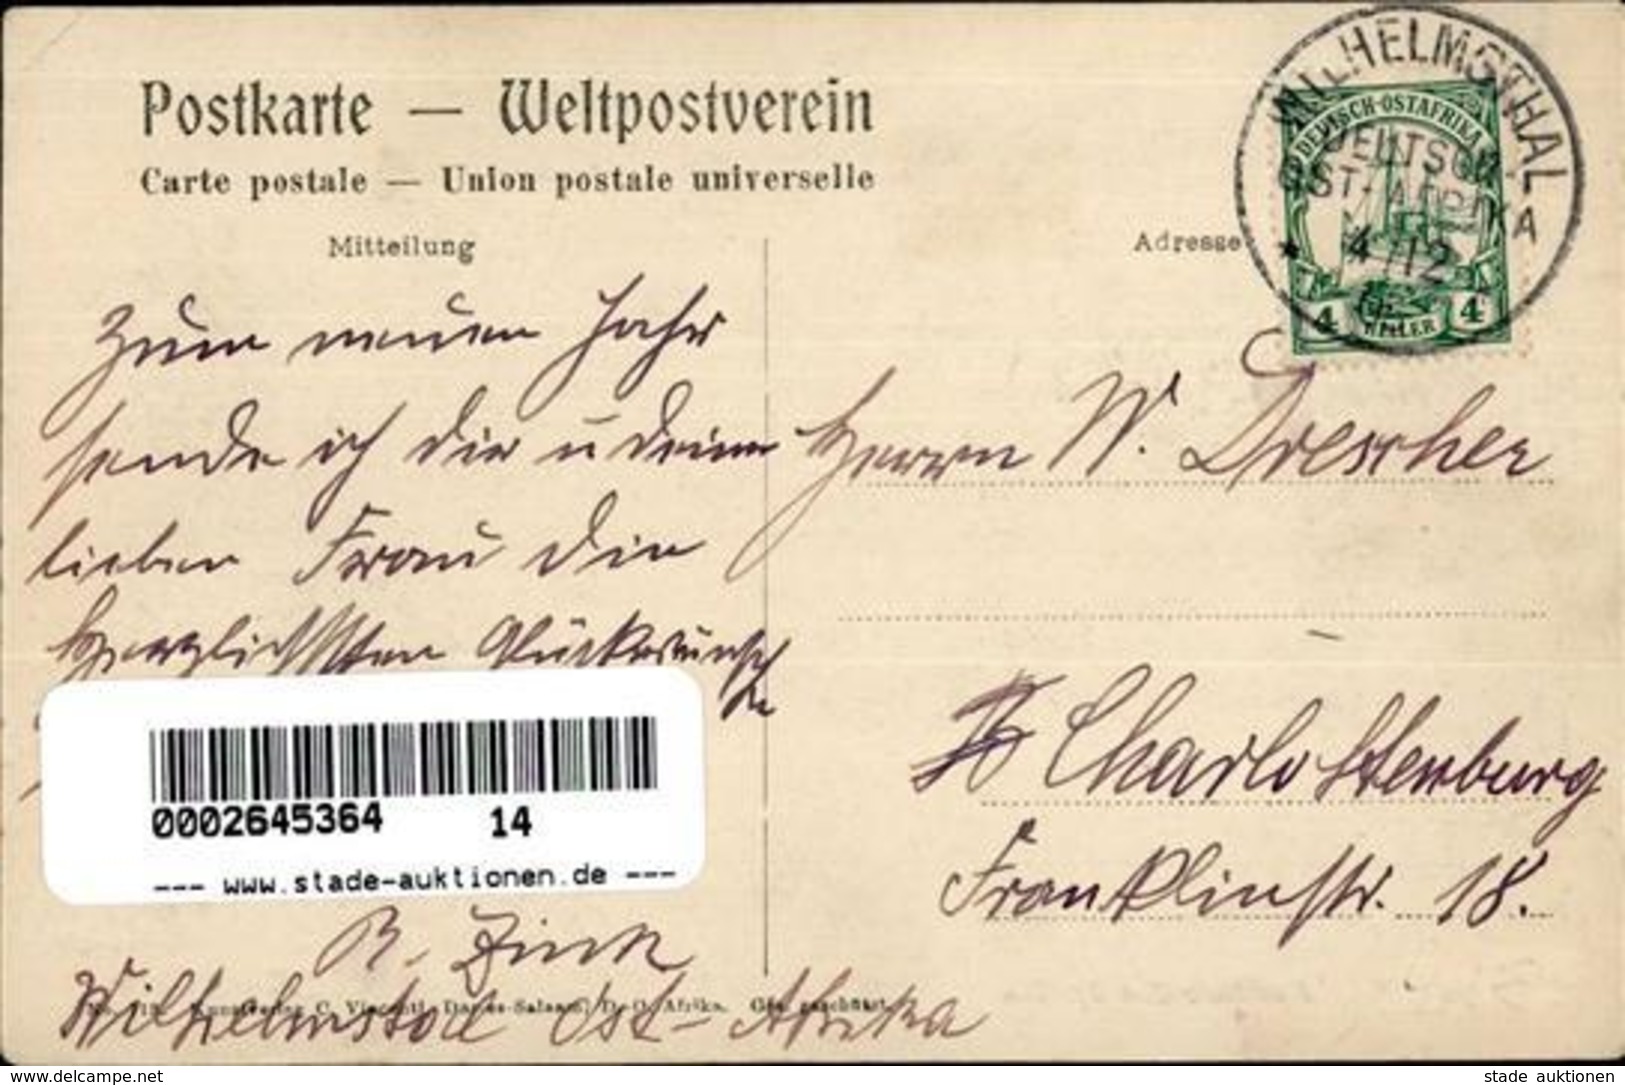 Postkarte — Weltpostverein
Carte postale — Union postale universelle
Mitteilung
Adresse
WILHELMSTHAL
DEUTSCH-OSTAFRIKA
DEUTSCH
OST-AFRIKA
4/12
4 HELLER 4
Zum neuen Jahr
sende ich dir u deiner
lieben Frau die
Herzlichsten Glückwünsch
e
Herrn W. Drescher
Charlottenburg
Franklinstr. 18.
0002645364 14
--- www.stade-auktionen.de ---
R. Zink
Wilhelmstal Ost-Afrika
Kunstverlag C. Vincenti, Dar-es-Salaam, D.-O.-Afrika. Ges. geschützt.
www.delcampe.net
stade auktionen